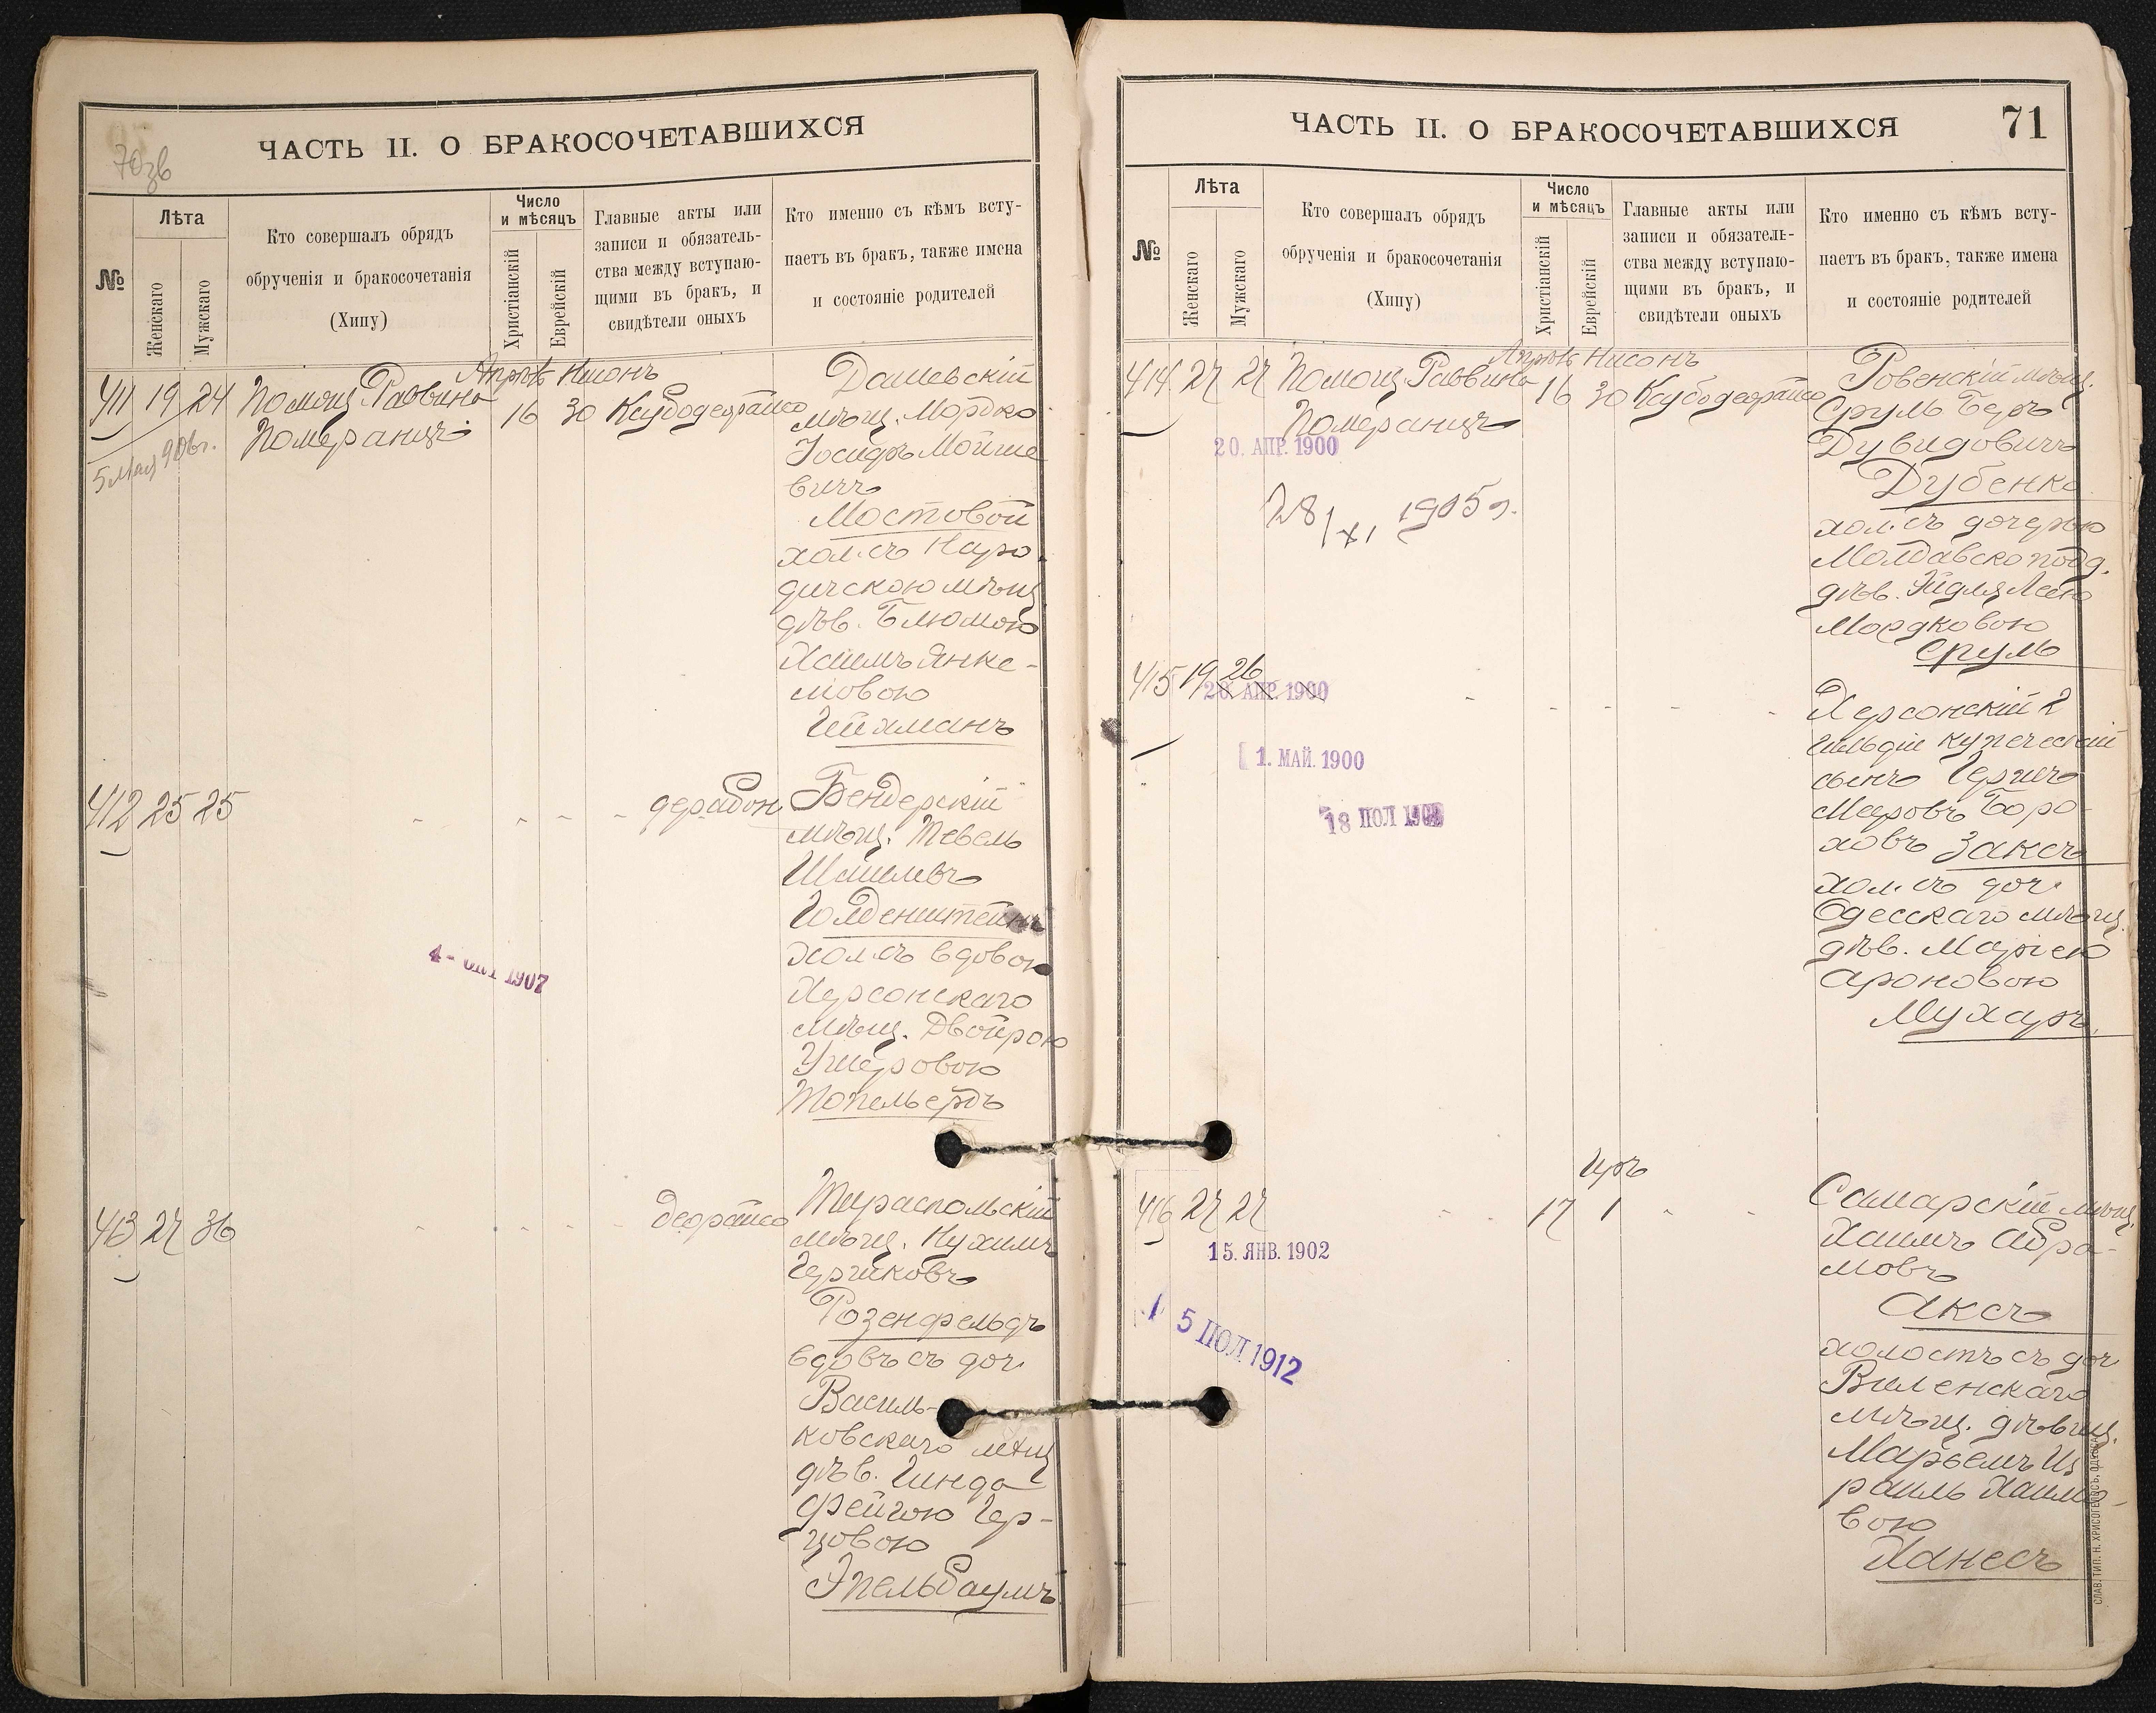 ЧАСТЬ II. О БРАКОСОЧЕТАВШИХСЯ
70зв
№
Лѣта
Женскаго
Мужскаго
Кто совершалъ обрядъ
обрученія и бракосочетанія
(Хипу)
Число
и мѣсяцъ
Христіанскій
Еврейскій
Главные акты или
записи и обязатель-
ства между вступаю-
щими въ бракъ, и
свидѣтели оныхъ
Кто именно съ кѣмъ всту-
паетъ въ бракъ, также имена
и состояніе родителей
Апрѣль Нисонъ
411 19 24 Помощ. Раввина
Померанцъ
16 30
5 мая 906г.
Дашевскій
мѣщ. Мордко
Іосифъ Мойше
вичъ
Мостовой
хол. съ Наро-
дичскою мѣщ
дѣв. Блюмою
Хаимъ Янке-
левою
Гейхманъ
412 25 25
Бендерскій
мѣщ. Тевель
Шмилевъ
Голденштейнъ
хол. съ вдовою
Херсонскаго
мѣщ. Двойрою
Ушеровою
4 - ОКТ 1907
413 27 36
Тираспольскій
мѣщ. Нухимъ
Гершковъ
Розенфельдъ
вдовъ съ доч.
Василь-
ковскаго мѣщ
дѣв. Гинда
Фейгою Гер-
цовою
Эпельбаумъ
ЧАСТЬ II. О БРАКОСОЧЕТАВШИХСЯ
71
№
Лѣта
Женскаго
Мужскаго
Кто совершалъ обрядъ
обрученія и бракосочетанія
(Хипу)
Число
и мѣсяцъ
Христіанскій
Еврейскій
Главные акты или
записи и обязатель-
ства между вступаю-
щими въ бракъ, и
свидѣтели оныхъ
Кто именно съ кѣмъ всту-
паетъ въ бракъ, также имена
и состояніе родителей
Апрѣль Нисонъ
414 27 27 Помощ. Раввина
Померанцъ
16 30
20. АПР. 1900
28/XI 1915 г.
Ровенскій мѣщ.
Сруль Беръ
Дувидовичъ
Дубенко
хол. съ дочерью
Молдавскоподд.
дѣв. Эйдля Лею
Мордковою
Сруль
415 19 26
20. АПР. 1900
1. МАЙ. 1900
Херсонскій 2
гильдіи купеческій
сынъ Гершъ
Мееровъ Боро-
ховъ Заксъ
хол. съ доч.
Одесскаго мѣщ.
дѣв. Маріею
Ароновою
Мухаръ
Іръ
416 27 27
17 1
15. ЯНВ. 1902
5 ІЮЛ 1912
Самарскій мѣщ.
Хаимъ Абра-
мовъ
Аксъ
холостъ съ доч
Виленскаго
мѣщ. дѣвиц.
Марьемъ Из
раиль Хаимо-
вою
Ханесъ
СЛАВ. ТИП. Н. ХРИСОГЕЛОСЪ, ОДЕССА